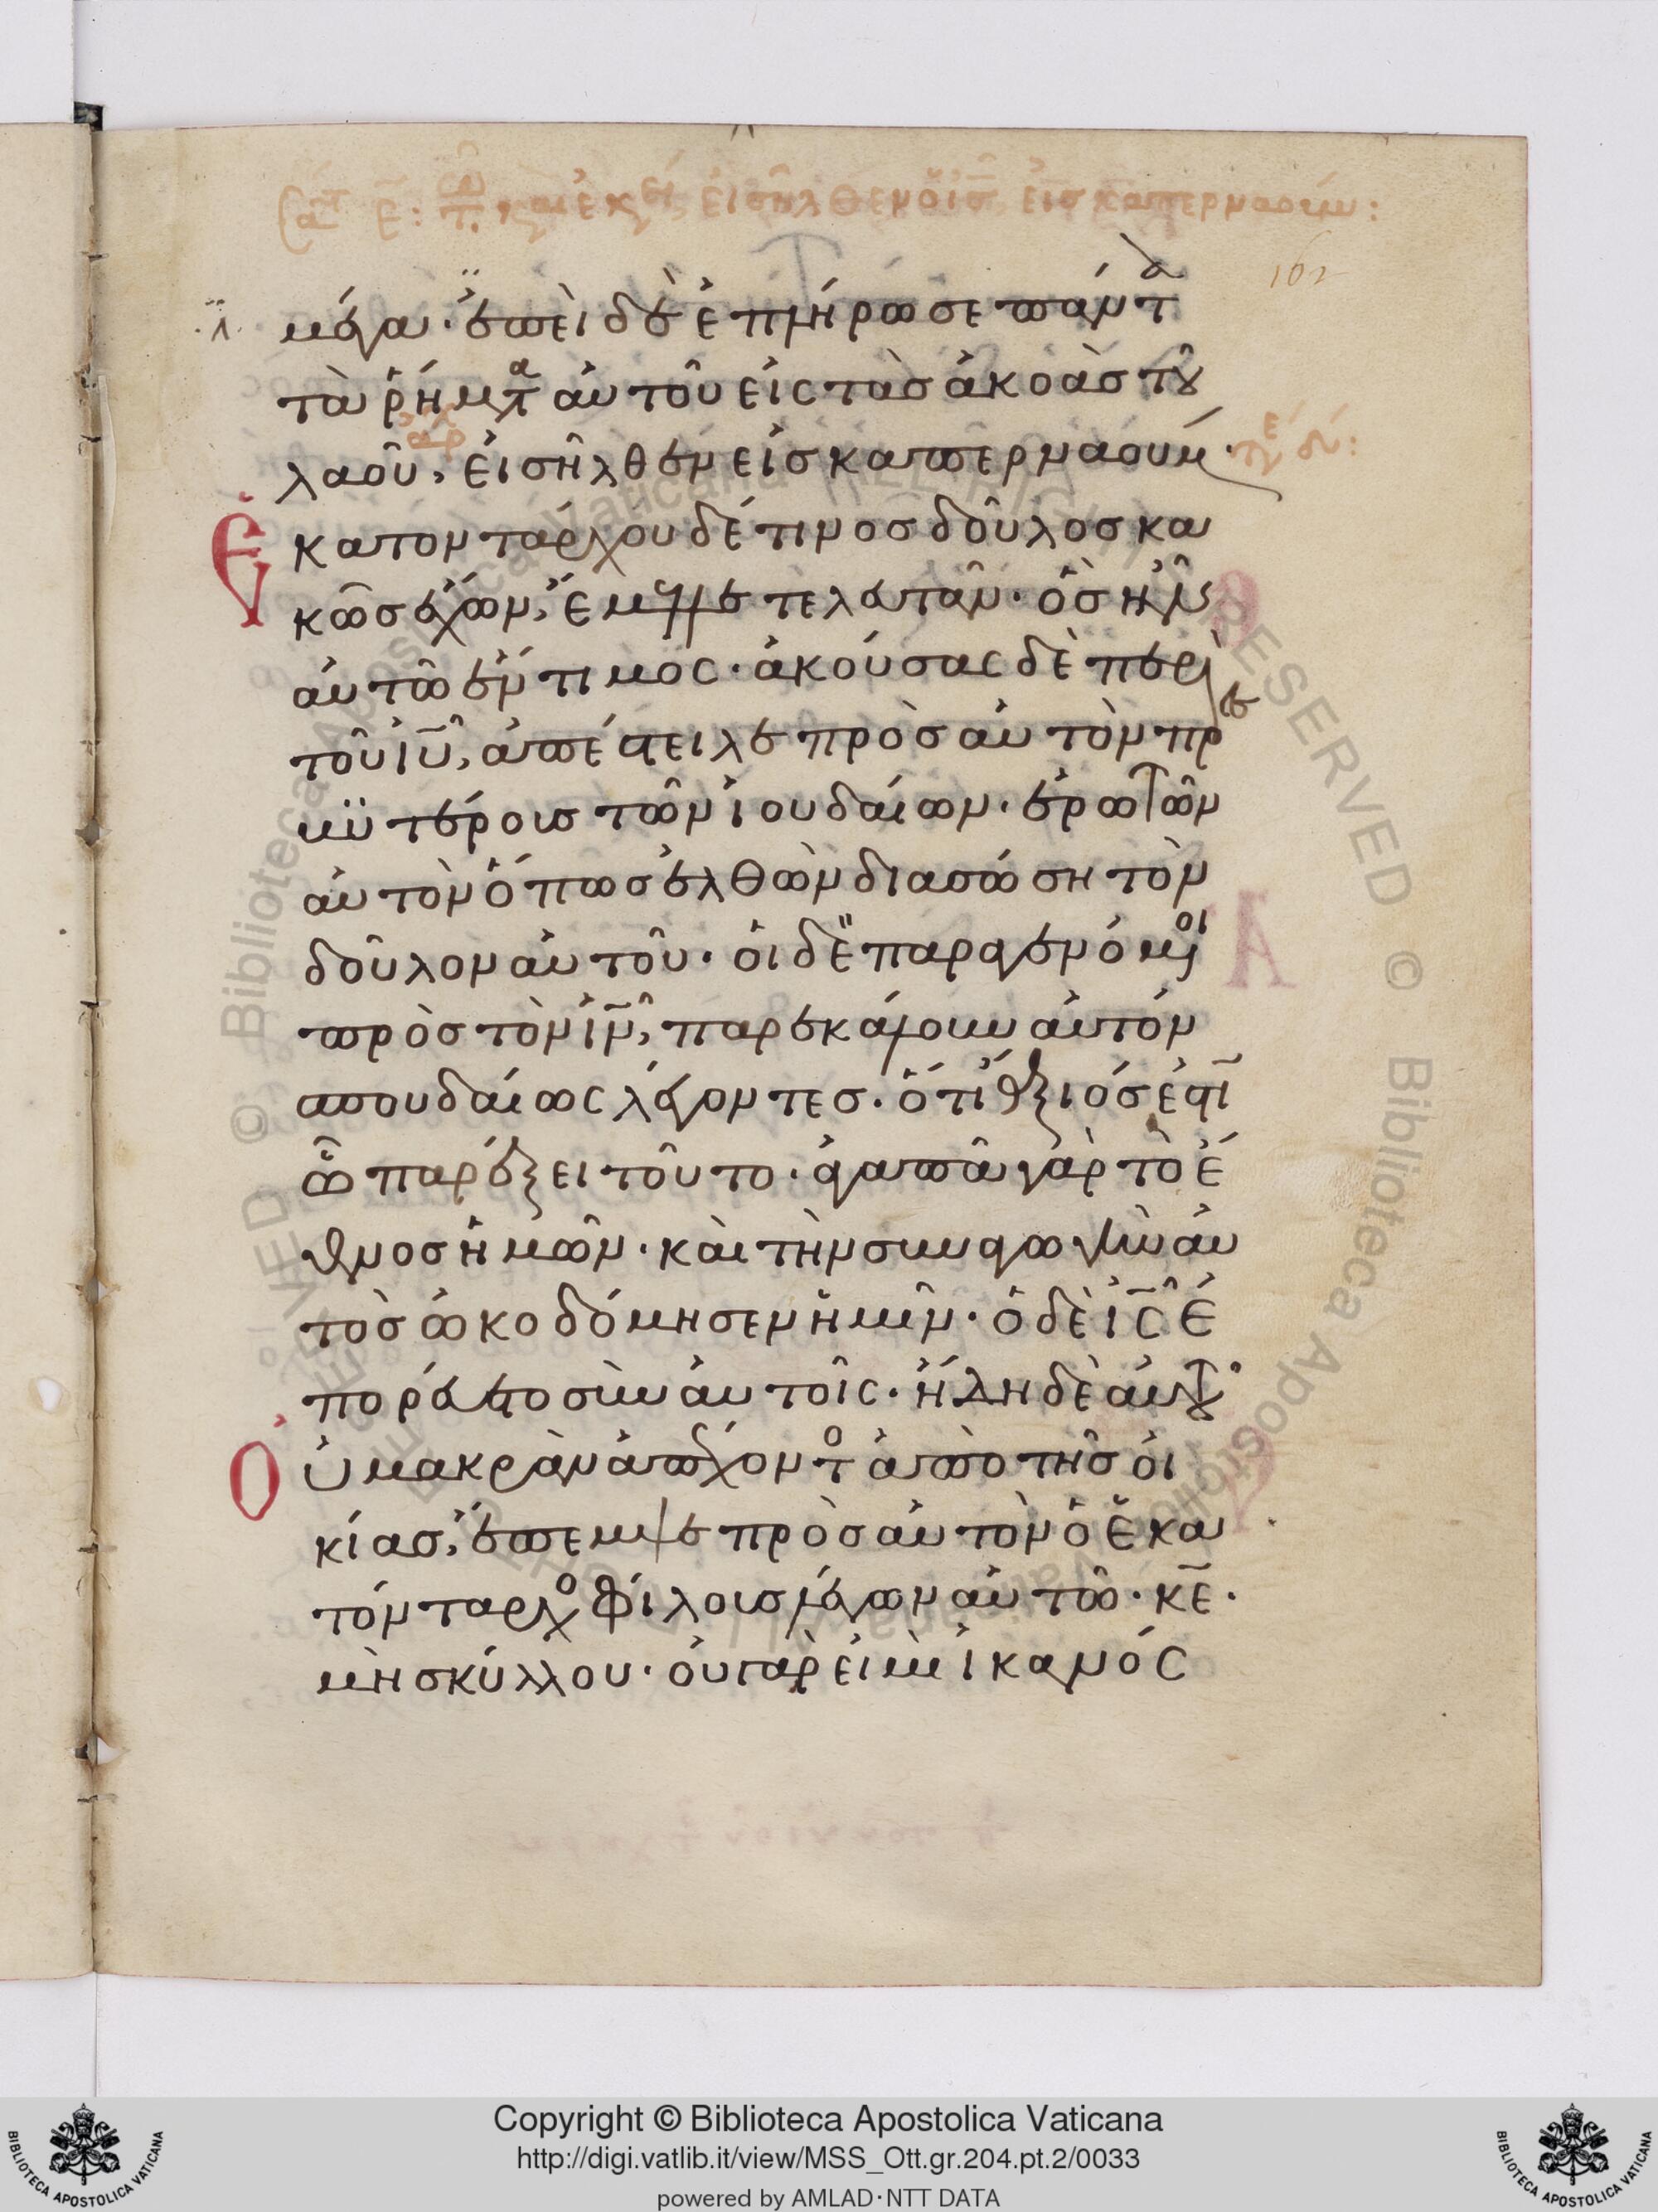 εἰσῆλθεν ὁ ἰς εἰς καπερναούμ:
162
μέγα· ἐπεὶ δὲ ἐπλήρωσε πάντα
τὰ ῥήματα αὐτοῦ εἰς τὰς ἀκοὰς τοῦ
λαοῦ, εἰσῆλθεν εἰς καπερναούμ·
Ἑκατοντάρχου δέ τινος δοῦλος κα
κῶς ἔχων, ἔμελλε τελευτᾶν· ὃς ἦν
αὐτῶ ἔντιμος· ἀκούσας δὲ περὶ
τοῦ ἰυ, ἀπέστειλε πρὸς αὐτὸν πρεσ
βϋτέρους τῶν ἰουδαίων· ἐρωτῶν
αὐτὸν ὅπως ἐλθὼν διασώση τὸν
δοῦλον αὐτοῦ· οἱ δὲ παραγενόμενοι
πρὸς τὸν ἰν, παρεκάλουν αὐτὸν
σπουδαίως λέγοντες· ὅτι ἄξιός ἐστιν
ὧ παρέξει τοῦτο· ἀγαπᾶ γὰρ τὸ ἔ
θνος ἡμῶν· καὶ τὴν συναγωγὴν αὐ
τὸς ὠκοδόμησεν ἡμῖν· ὁ δὲ ἰς ἐ
πορεύετο σὺν αὐτοῖς· ἤδη δὲ αὐτοῦ
Οὐ μακρὰν ἀπέχοντος ἀπὸ τῆς οἰ
κίας, ἔπεμψε πρὸς αὐτὸν ὁ ἑκα
τόνταρχος φίλους λέγων αὐτῶ· κε·
μὴ σκύλλου· οὐ γάρ εἰμι ἱκανός
Copyright © Biblioteca Apostolica Vaticana
http://digi.vatlib.it/view/MSS_Ott.gr.204.pt.2/0033
powered by AMLAD·NTT DATA